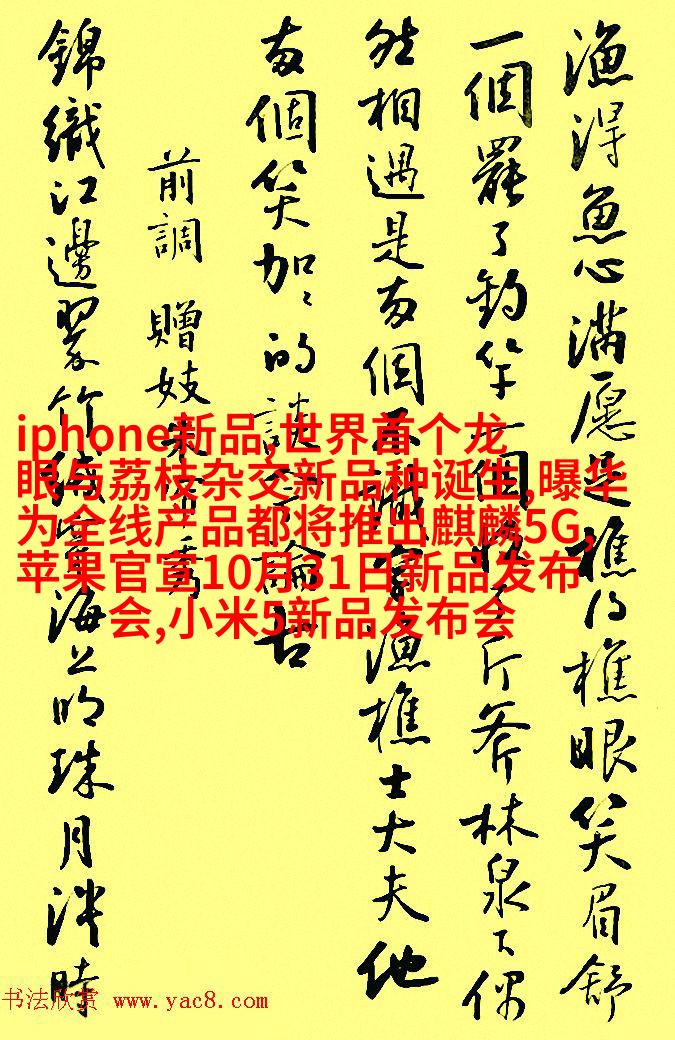 漁得魚心滿愿足樵得樵眼笑眉舒
一個罷了釣竿一個收了斤斧林泉下偶
然相遇是兩個不識字漁樵士大夫他
兩個笑加〻的談今論古
前調 贈妓朱帘秀
錦織江邊翠竹絨穿海上明珠月淡時
iphone新品,世界首个龙
眼与荔枝杂交新品种诞生,曝华
为全线产品都将推出麒麟5G,
苹果官宣10月31日新品发布
会,小米5新品发布会
书法欣赏 www.yac8.com